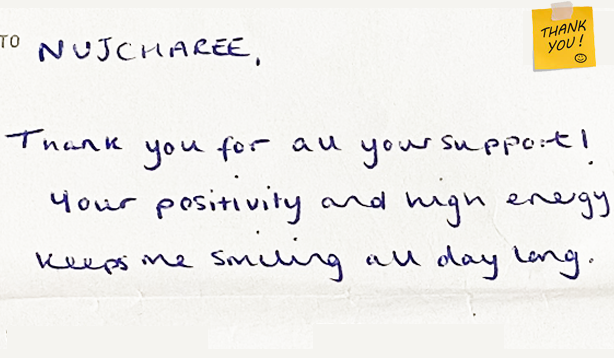 TO NUJCHAREE,
THANK
YOU!
Thank you for all your support!
Your positivity and high energy
keeps me smiling all day long.